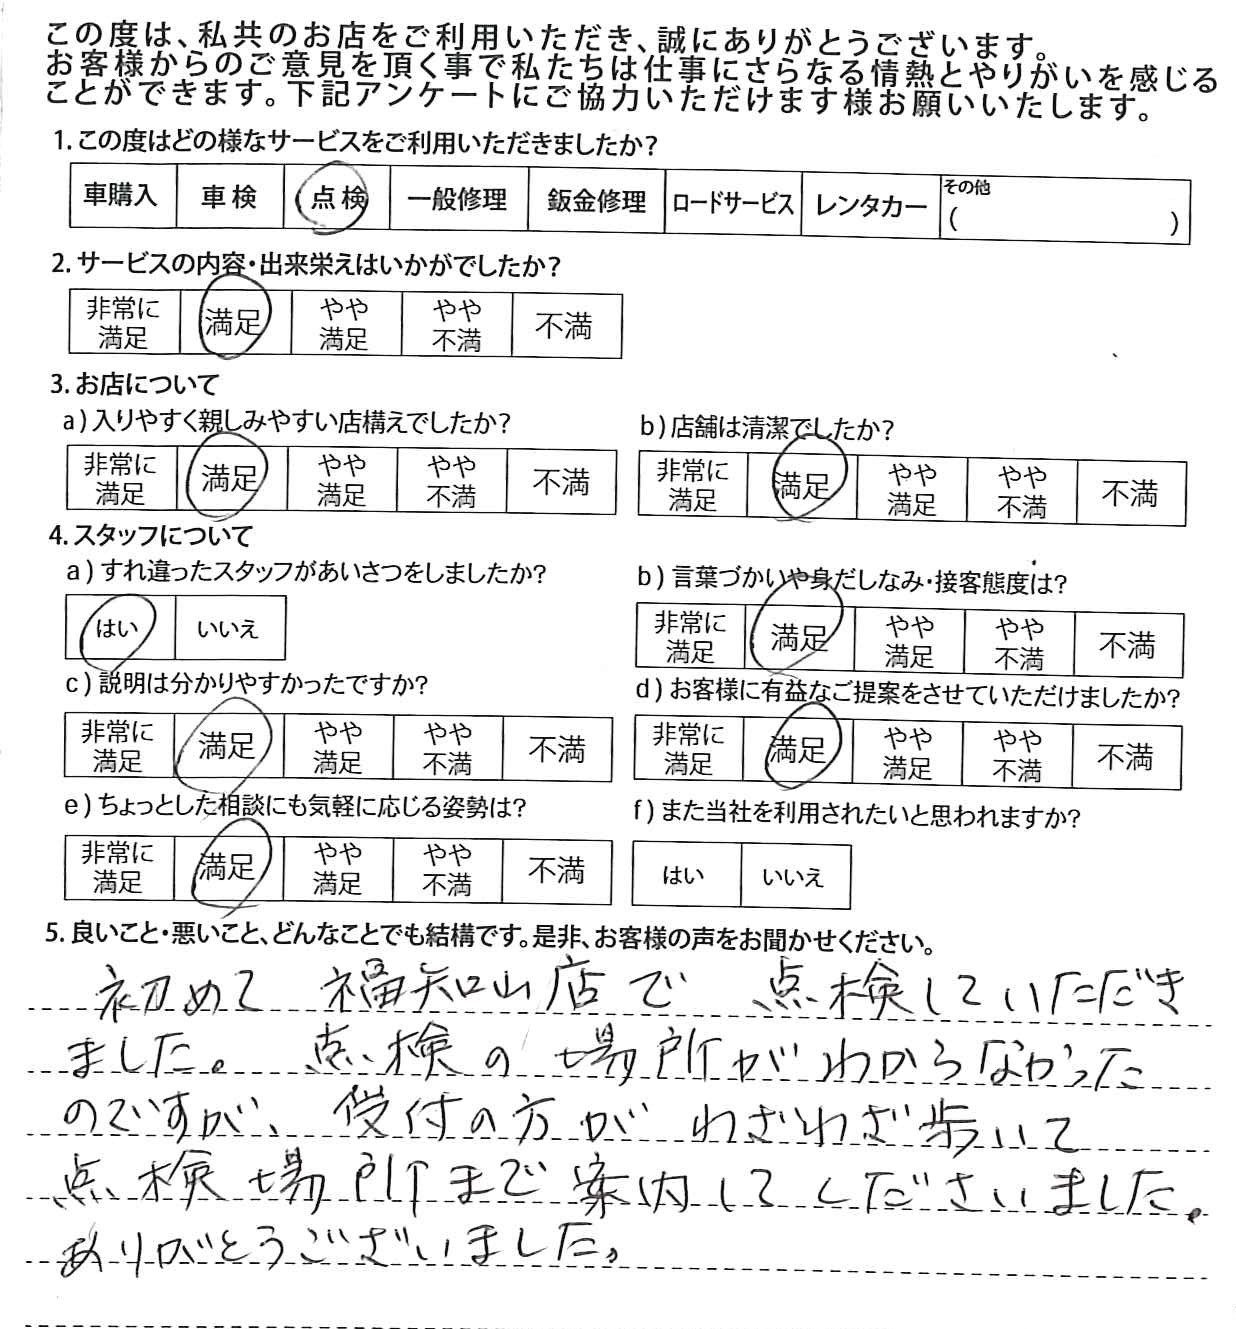 この度は、私共のお店をご利用いただき、誠にありがとうございます。
お客様からのご意見を頂く事で私たちは仕事にさらなる情熱とやりがいを感じる
ことができます。下記アンケートにご協力いただけます様お願いいたします。
1.この度はどの様なサービスをご利用いただきましたか？
車購入 車検 点検 一般修理 鈑金修理 ロードサービス レンタカー その他 ( )
2.サービスの内容・出来栄えはいかがでしたか？
非常に満足 満足 やや満足 やや不満 不満
3.お店について
a)入りやすく親しみやすい店構えでしたか？
非常に満足 満足 やや満足 やや不満 不満
b)店舗は清潔でしたか？
非常に満足 満足 やや満足 やや不満 不満
4.スタッフについて
a)すれ違ったスタッフがあいさつをしましたか？
はい いいえ
b)言葉づかいや身だしなみ・接客態度は？
非常に満足 満足 やや満足 やや不満 不満
c)説明は分かりやすかったですか？
非常に満足 満足 やや満足 やや不満 不満
d)お客様に有益なご提案をさせていただけましたか？
非常に満足 満足 やや満足 やや不満 不満
e)ちょっとした相談にも気軽に応じる姿勢は？
非常に満足 満足 やや満足 やや不満 不満
f)また当社を利用されたいと思われますか？
はい いいえ
5.良いこと・悪いこと、どんなことでも結構です。是非、お客様の声をお聞かせください。
初めて 福知山店で 点検していただき
ました。点検の 場所がわからなかった
のですが、受付の方が わざわざ歩いて
点検場所まで案内してくださいました。
ありがとうございました。